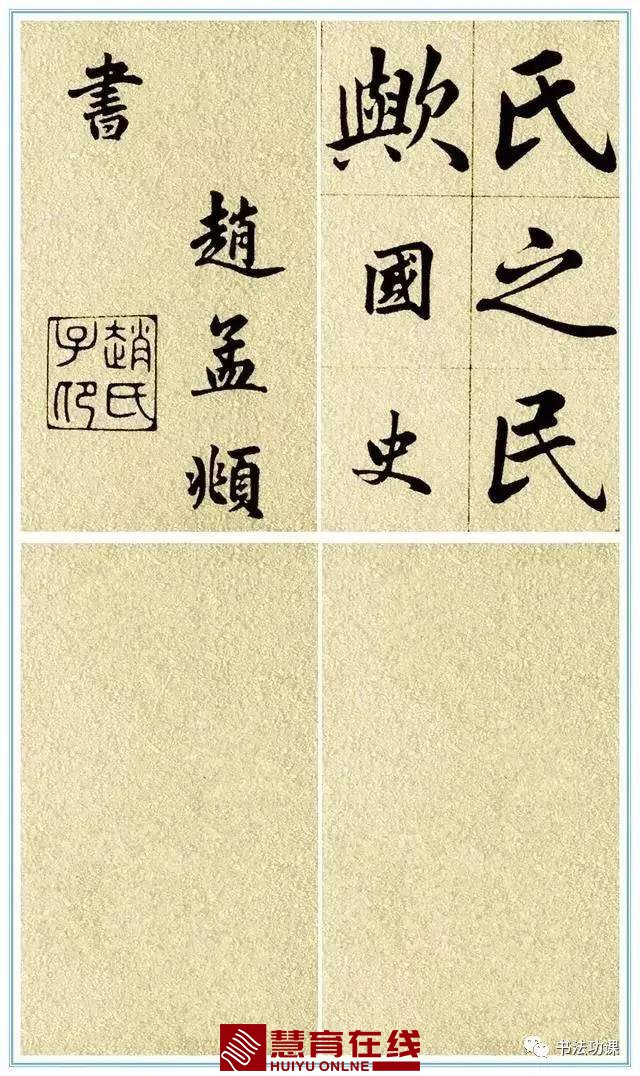 氏之民
歟國史
趙孟頫
書
趙氏
子卬
慧育在线
HUIYU ONLINE
书法功课